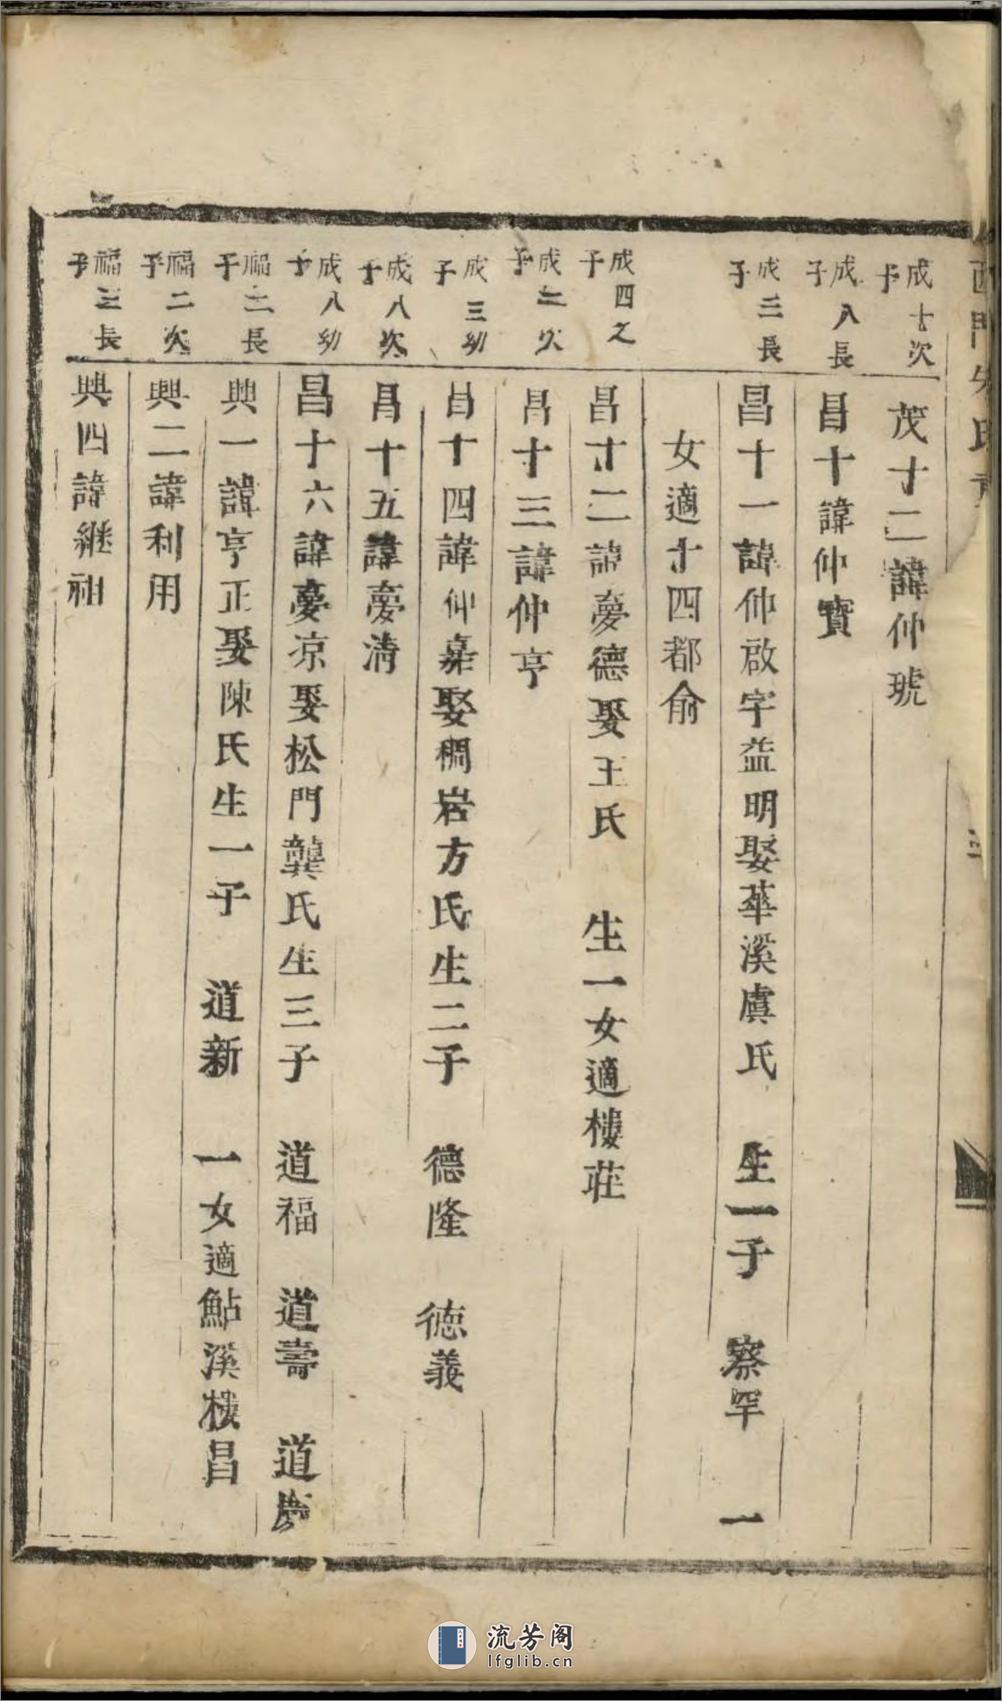 成十次子
茂十二諱仲琥
成八長子
昌十諱仲寳
成三長子
昌十一諱仲啟字益明娶華溪虞氏 生一子 察罕 一
女適十四都俞
成四之子
昌十二諱夢德娶王氏 生一女適樓莊
成二次子
昌十三諱仲亨
成三幼子
昌十四諱仲嘉娶稠岩方氏生二子 德隆 德義
成八次子
昌十五諱夢清
成八幼子
昌十六諱夢凉娶松門龔氏生三子 道福 道壽 道慶
福二長子
興一諱亨正娶陳氏生一子 道新 一女適鮎溪樓昌
福二次子
興二諱利用
福三長子
興四諱継祖
流芳阁
lfglib.cn